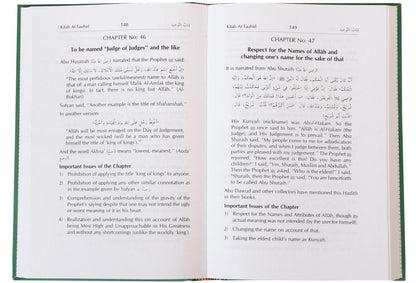 Kitab At-Tauhid
148
كتاب التوحيد
CHAPTER No: 46
To be named "Judge of Judges" and the like
Abu Hurairah narrated that the Prophet said:
"The most perfidious (awful/meanest) name to Allah is
that of a man calling himself Malik Al-Amlak (the king
of kings). In fact, there is no king but Allah." (Al-
Bukhari)
Sufyan said, "Another example is the title of Shahanshah."
In another version:
"Allah will be most enraged on the Day of Judgement,
and the most wicked (will) be a man who has given
himself the title of (king of kings)."
And the word Akhna' means "lowest, meanest," (Aoda'
the smallest).
Important Issues of the Chapter
1) Prohibition of applying the title 'king of kings' to anyone.
2) Prohibition of applying any other similar connotation as
in the example given by Sufyan
3) Comprehension and understanding of the gravity of the
Prophet's saying despite that one may not intend the ugly
or worst meaning of it in his heart.
4) Realization and understanding this on account of Allah
being Most High and Unapproachable in His Greatness
and without any shortcomings (unlike the worldly 'king').
Kitab At-Tauhid
149
كتاب التوحيد
CHAPTER No: 47
Respect for the Names of Allah and
changing one's name for the sake of that
It is narrated from Abu Shuraih
His Kunyah (nickname) was Abul-Hakam. So the
Prophet once said to him, "Allah is Al-Hakam (the
Judge), and His Judgement is to prevail." Then Abu
Shuraih said, "My people come to me for adjudication
of their disputes; and when I judge between them, both
parties are pleased with my judgement." The Prophet
replied, "How excellent is this! Do you have any
children?" I said, "Yes, Shuraih, Muslim and Abdullah."
Then he asked, "Who is the eldest?" I said,
"Shuraih, then the Prophet said, "You are henceforth
to be called Abu Shuraih."
Abu Dawud and other collectors have mentioned this Hadith
in their books.
Important Issues of the Chapter
1) Respect for the Names and Attributes of Allah, though its
actual meaning was not intended (by the user for himself).
2) Changing the name on account of that.
3) Taking the eldest child's name as Kunyah.